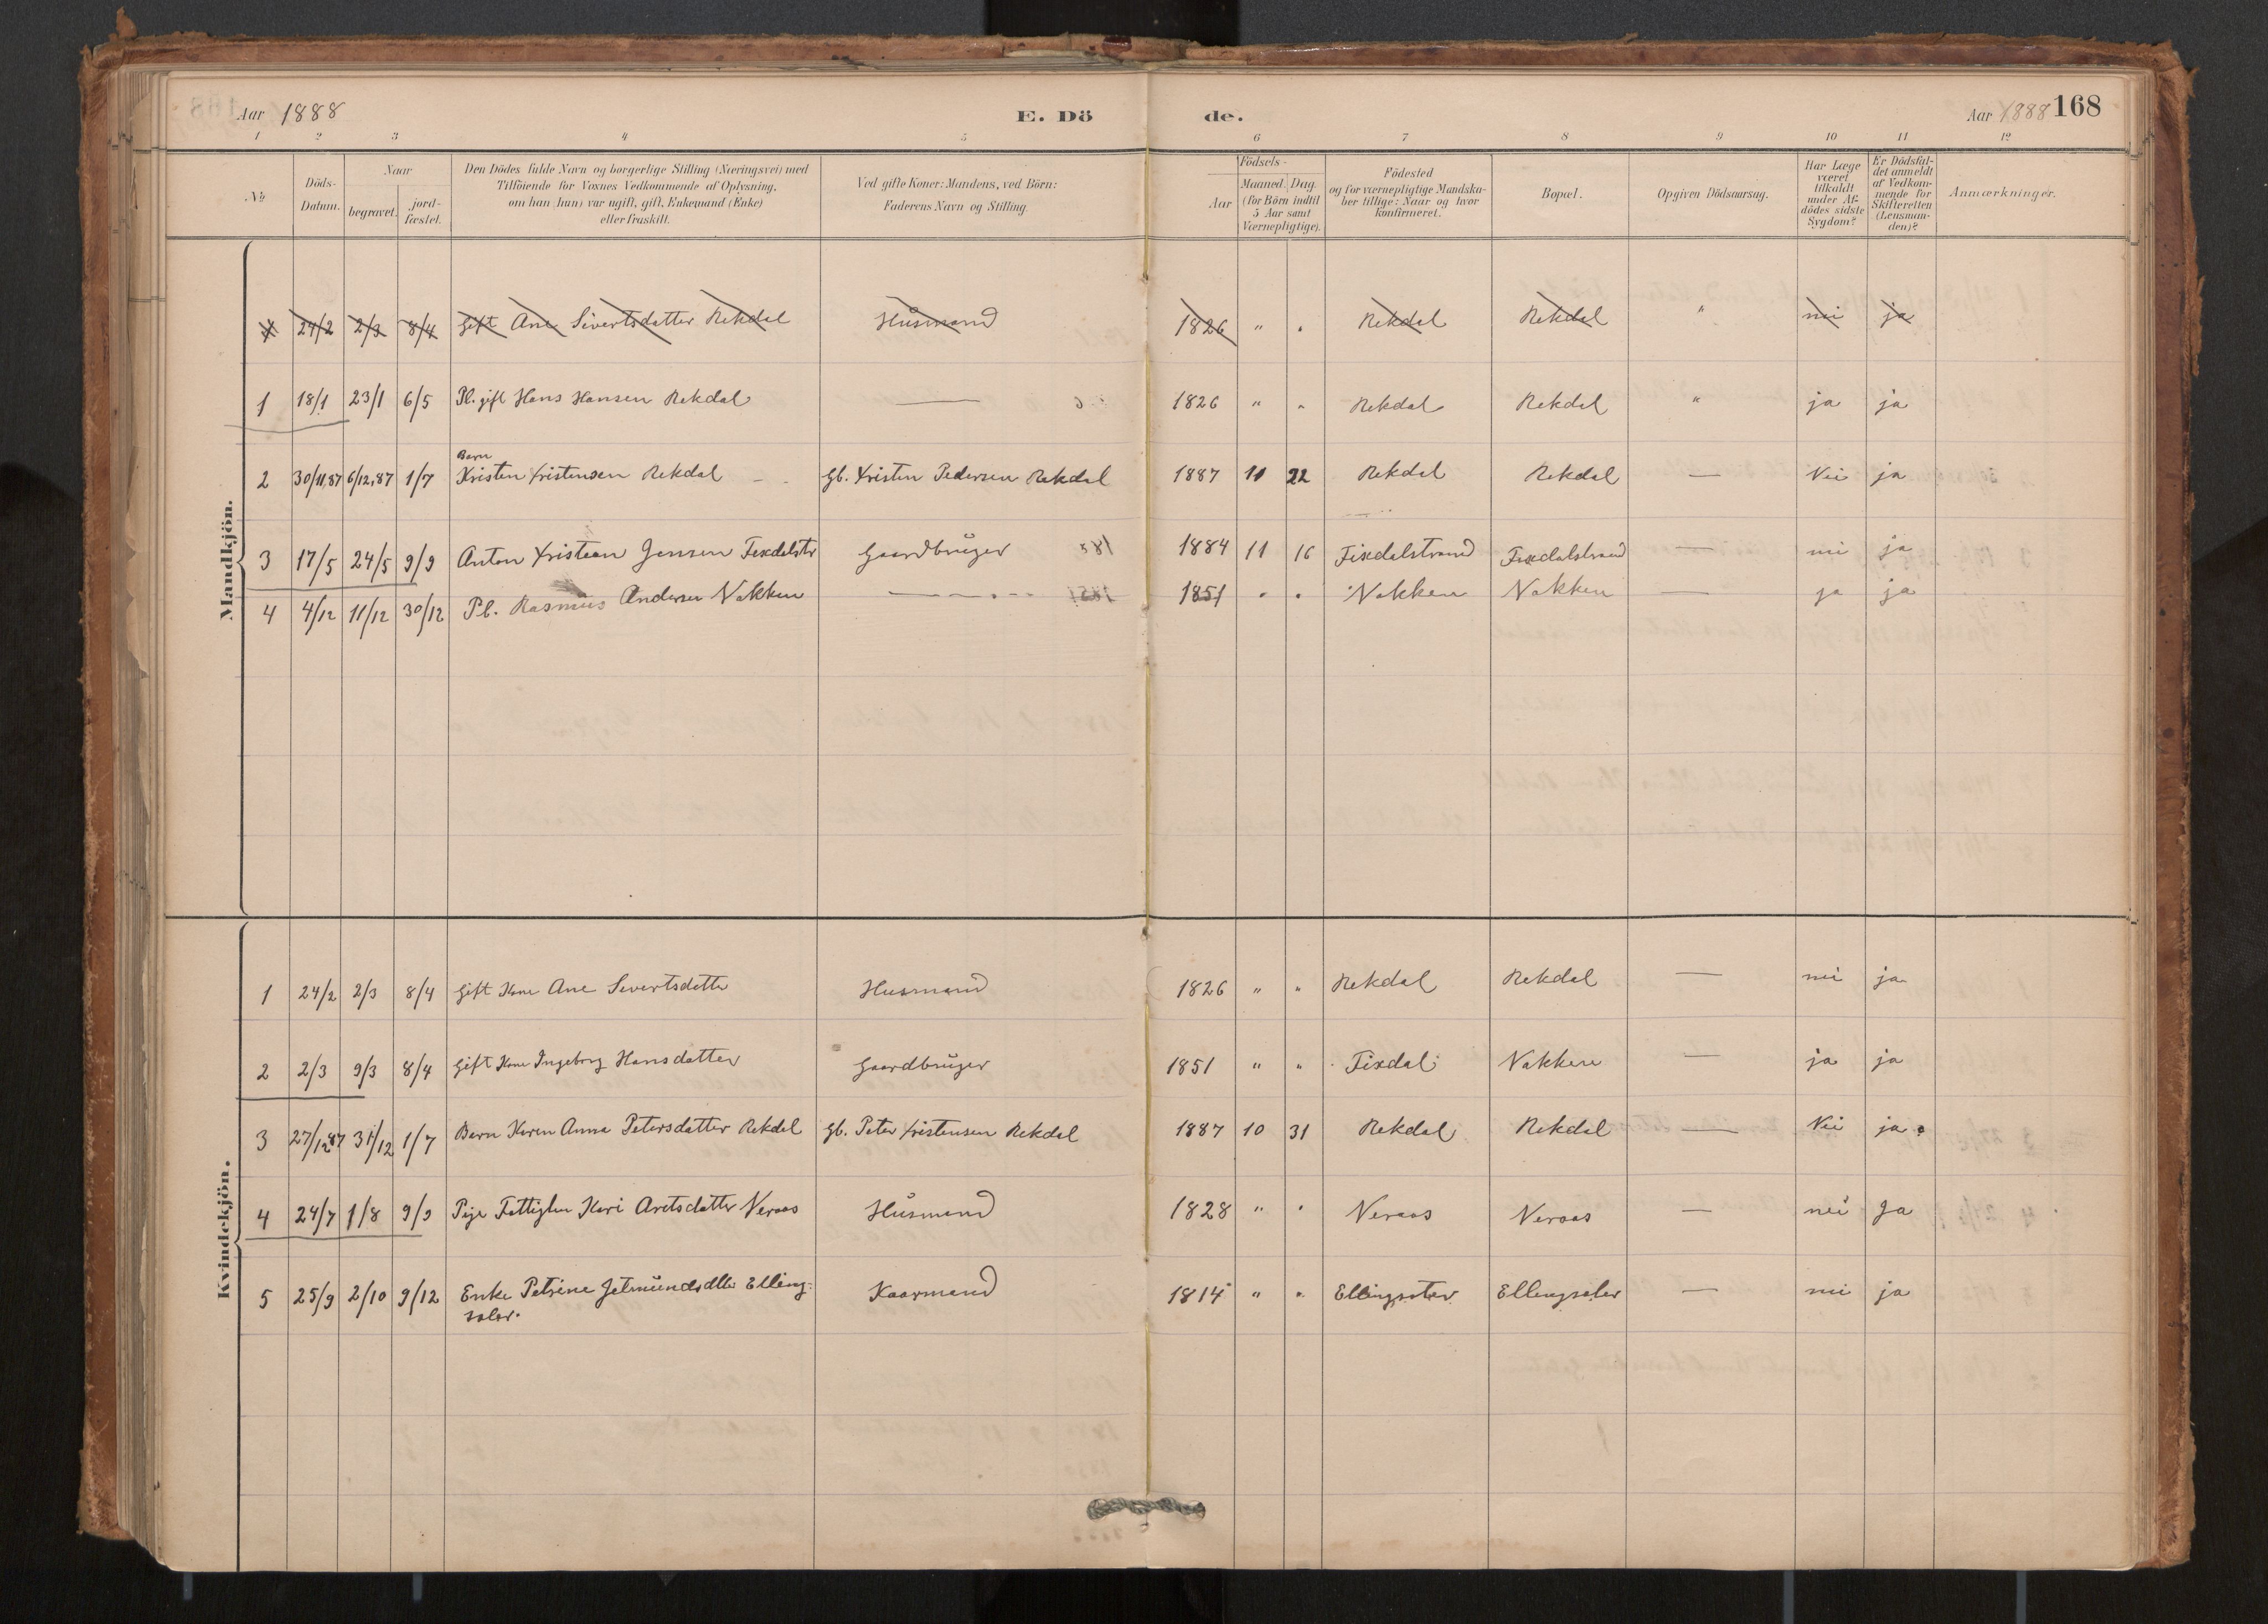 Aar 1888 E. Dö de. Aar 1888 168
1 2 3 4 5 6 7 8 9 10 11 12
No Döds-Datum. Naar begravet. jord-fæstet. Den Dödes fulde Navn og borgerlige Stilling (Næringsvei) med Tilföiende for Voxnes Vedkommende af Oplysning, om han (hun) var ugift, gift, Enkemand (Enke) eller fraskilt. Ved gifte Koner: Mandens, ved Börn: Faderens Navn og Stilling. Födsels- Aar Maaned. Dag. (for Börn indtil 5 Aar samt Værnepligtige). Födested og for værnepligtige Mandskaber tillige: Naar og hvor konfirmeret. Bopæl. Opgiven Dödsaarsag. Har Læge været tilkaldt under Afdödes sidste Sygdom? Er Dödsfaldet anmeldt af Vedkommende for Skifteretten (Lensmanden)? Anmærkninger.
Mandkjön.
1 24/2 2/3 8/4 Gift Ane Sivertsdatter Rekdal Husmand 1826 " " Rekdal Rekdal " nei ja
1 18/1 23/1 6/5 Pl. gift Hans Hansen Rekdal — 1826 " " Rekdal Rekdal " ja ja
Barn
2 30/11,87 6/12,87 1/7 Kristen Xristensen Rekdal Gb. Xristen Pedersen Rekdal 1887 11 22 Rekdal Rekdal — Nei ja
3 17/5 24/5 9/9 Anton Xristian Jensen Fixdalstr Gaardbruger 1884 11 16 Fixdalstrand Fixdalstrand — nei ja
4 4/12 11/12 30/12 Pb. Rasmus Andersen Nakken — 1851 " " Nakken Nakken — ja ja
Kvindekjön.
1 24/2 2/3 8/4 Gift Kone Ane Sivertsdatter Husmand 1826 " " Rekdal Rekdal — nei ja
2 2/3 9/3 8/4 Gift Kone Ingeborg Hansdatter Gaardbruger 1851 " " Fixdal Nakken — ja ja
3 27/12 87 31/12 1/7 Barn Karen Anna Petersdatter Rekdal Gb. Peter Xristensen Rekdal 1887 10 31 Rekdal Rekdal — Nei ja
4 24/7 1/8 9/9 Pige Fattiglem Kari Aretsdatter Veraas Husmand 1828 " " Veraas Veraas — nei Ja
5 25/9 2/10 9/12 Enke Petrine Jetmundsdtr Elling- Kaarmand 1814 " " Ellingsæter Ellingsæter — nei ja
sæter.